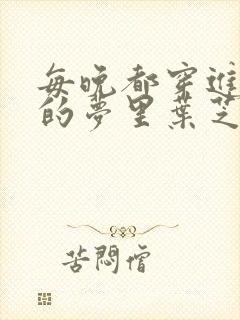 每晚都穿進
的夢里葉芝
苦悶僧